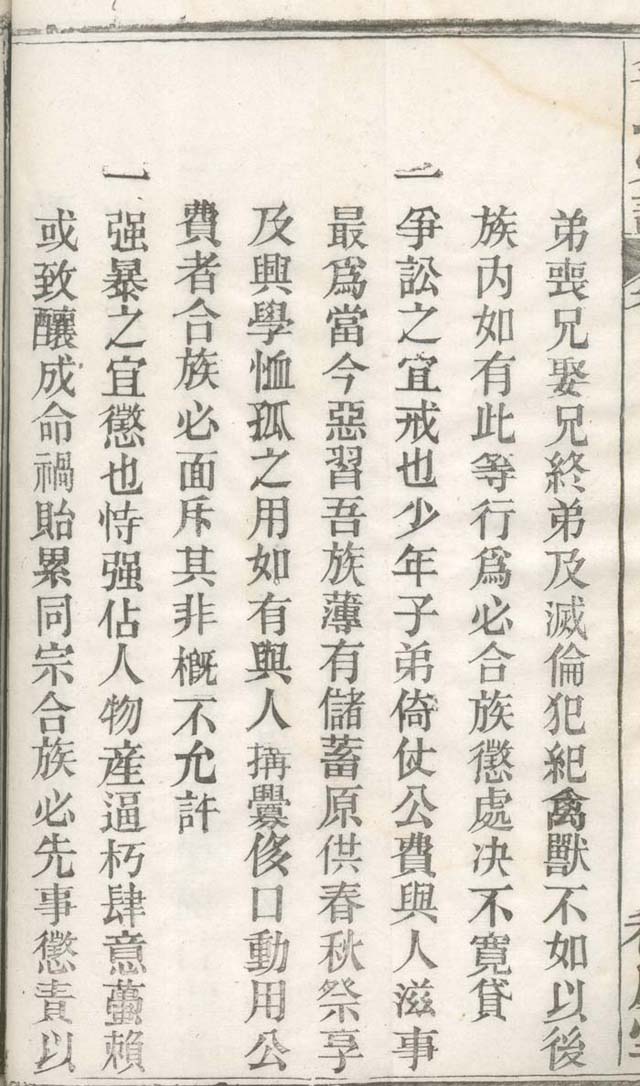 弟喪兄娶兄終弟及滅倫犯紀禽獸不如以後
族內如有此等行爲必合族懲處决不寬貸
一爭訟之宜戒也少年子弟倚仗公費與人滋事
最爲當今惡習吾族薄有儲蓄原供春秋祭享
及興學恤孤之用如有與人搆釁侈口動用公
費者合族必面斥其非槪不允許
一强暴之宜懲也恃强佔人物產逼朽肆意蠆賴
或致釀成命禍貽累同宗合族必先事懲責以